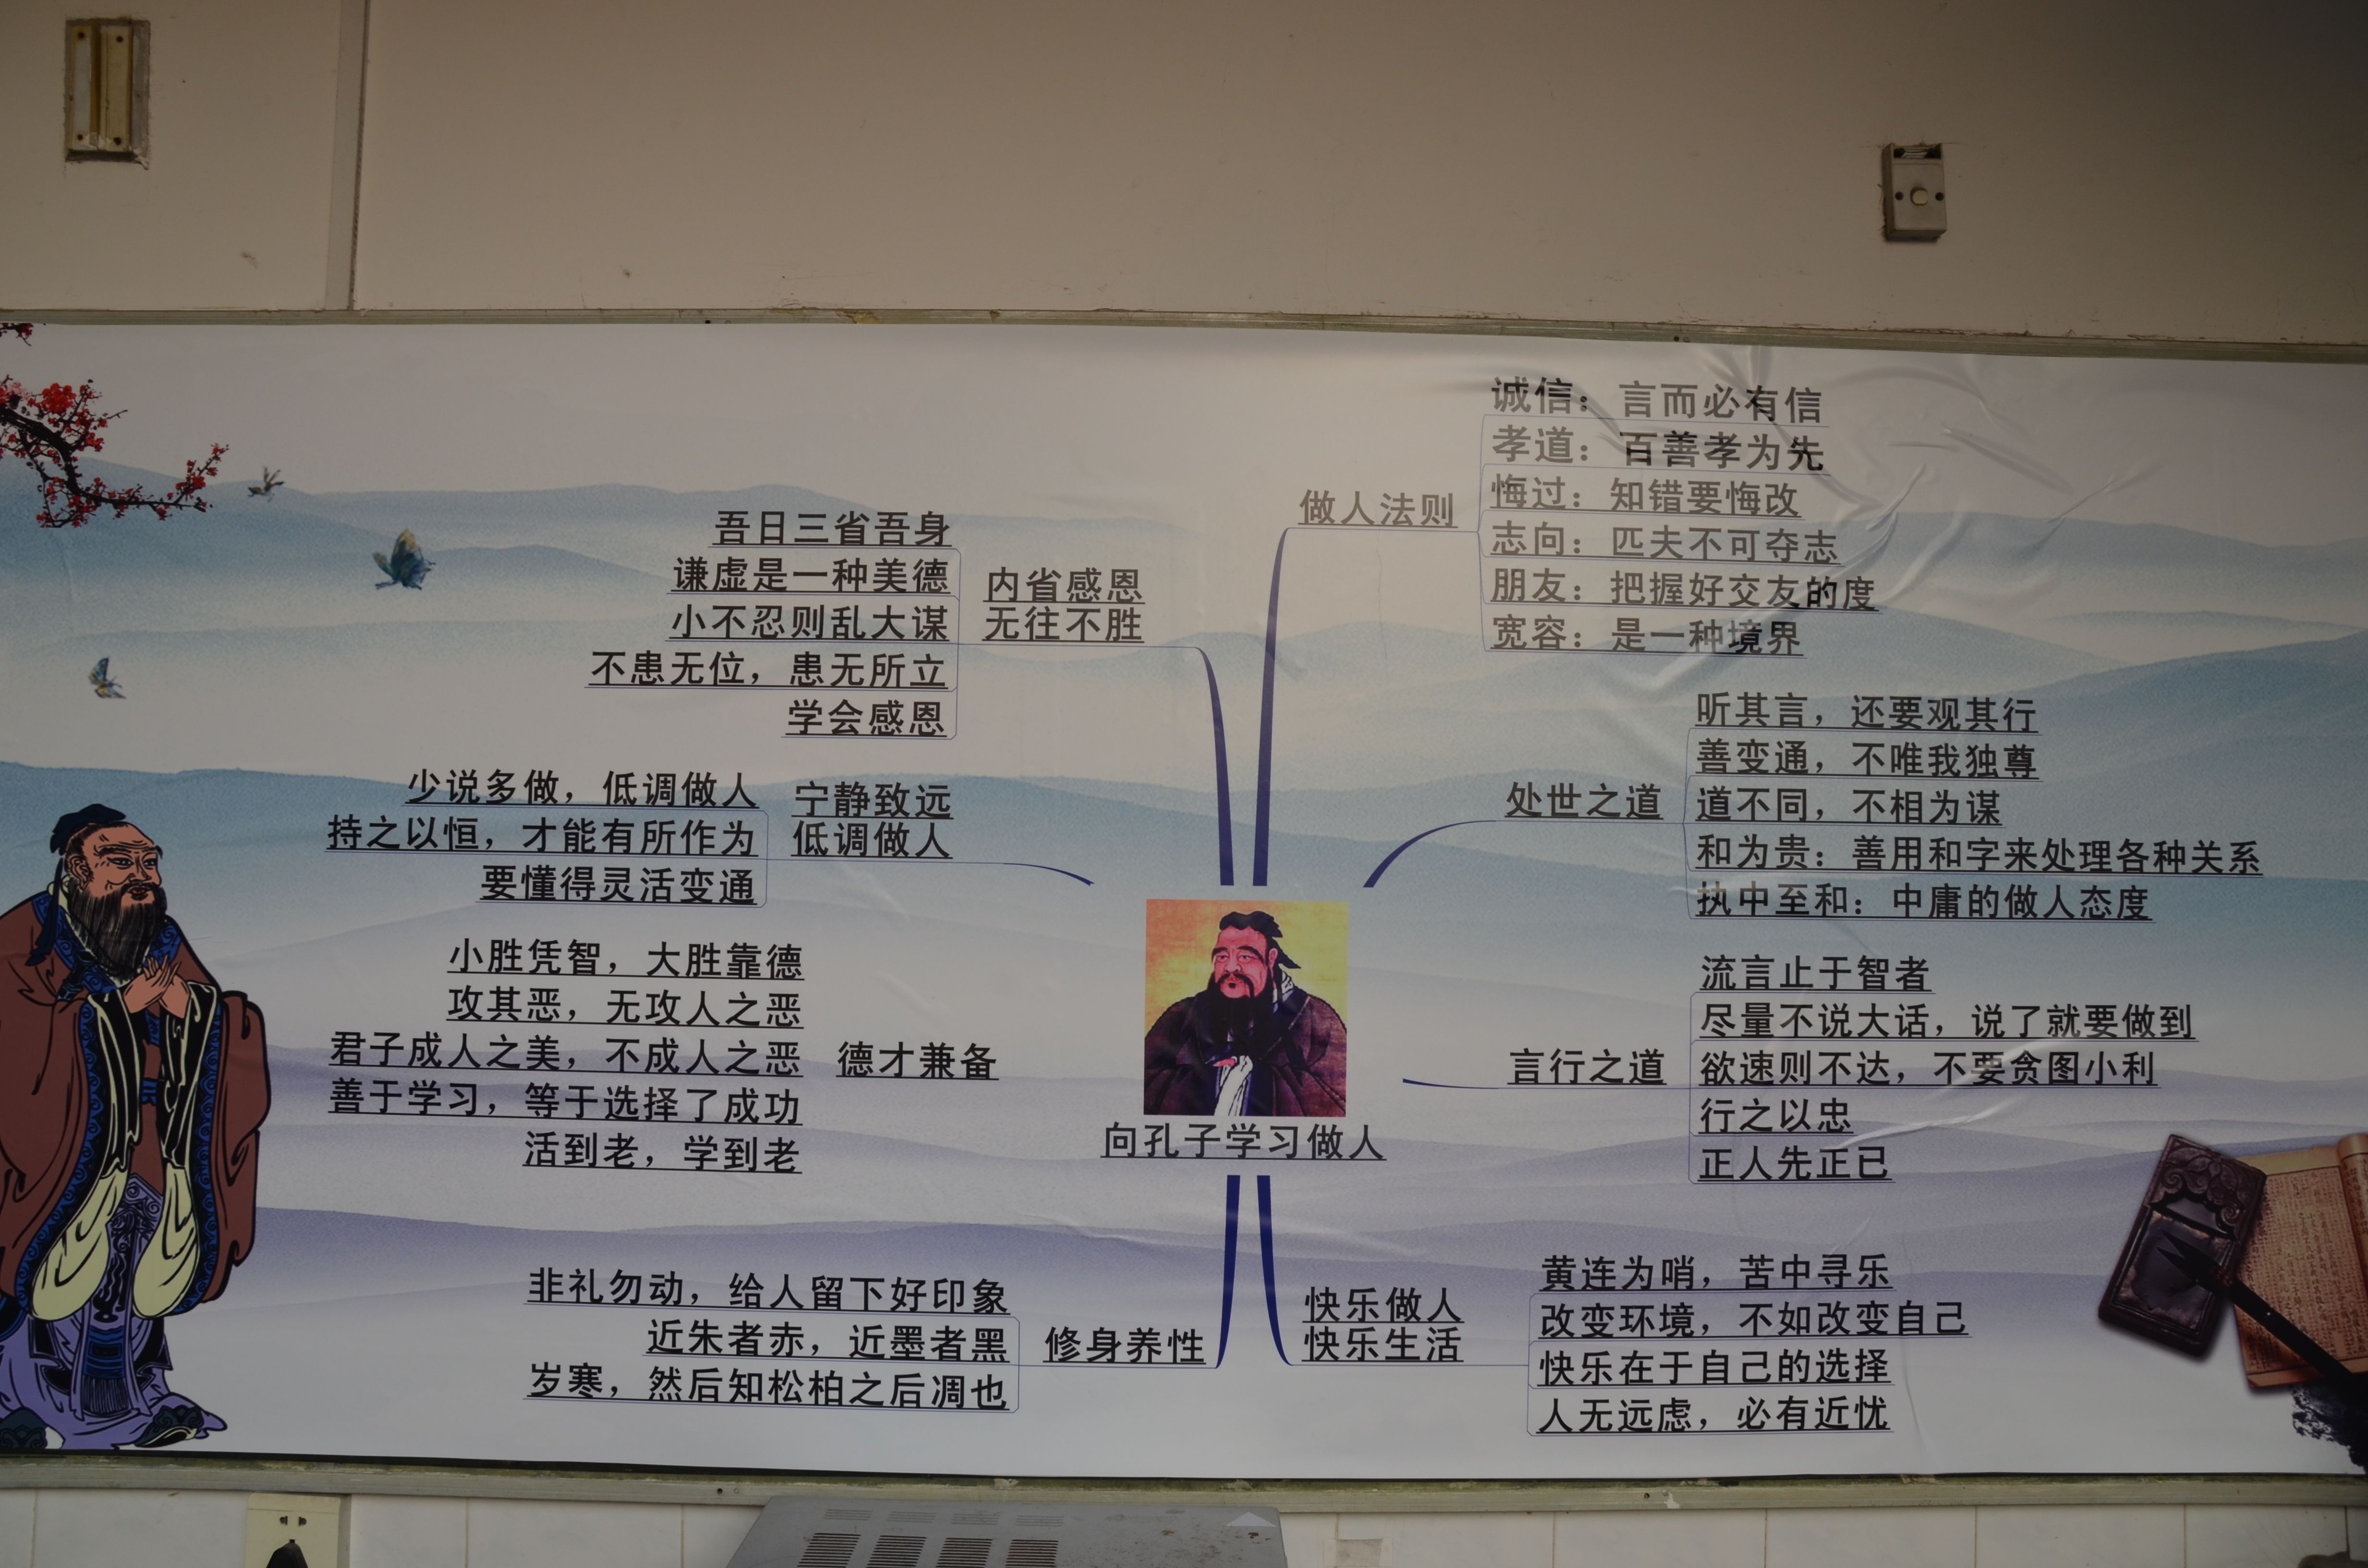 向孔子学习做人
做人法则
诚信：言而必有信
孝道：百善孝为先
悔过：知错要悔改
志向：匹夫不可夺志
朋友：把握好交友的度
宽容：是一种境界
处世之道
听其言，还要观其行
善变通，不唯我独尊
道不同，不相为谋
和为贵：善用和字来处理各种关系
执中至和：中庸的做人态度
言行之道
流言止于智者
尽量不说大话，说了就要做到
欲速则不达，不要贪图小利
行之以忠
正人先正已
快乐做人
快乐生活
黄连为哨，苦中寻乐
改变环境，不如改变自己
快乐在于自己的选择
人无远虑，必有近忧
内省感恩
无往不胜
吾日三省吾身
谦虚是一种美德
小不忍则乱大谋
不患无位，患无所立
学会感恩
宁静致远
低调做人
少说多做，低调做人
持之以恒，才能有所作为
要懂得灵活变通
德才兼备
小胜凭智，大胜靠德
攻其恶，无攻人之恶
君子成人之美，不成人之恶
善于学习，等于选择了成功
活到老，学到老
修身养性
非礼勿动，给人留下好印象
近朱者赤，近墨者黑
岁寒，然后知松柏之后凋也